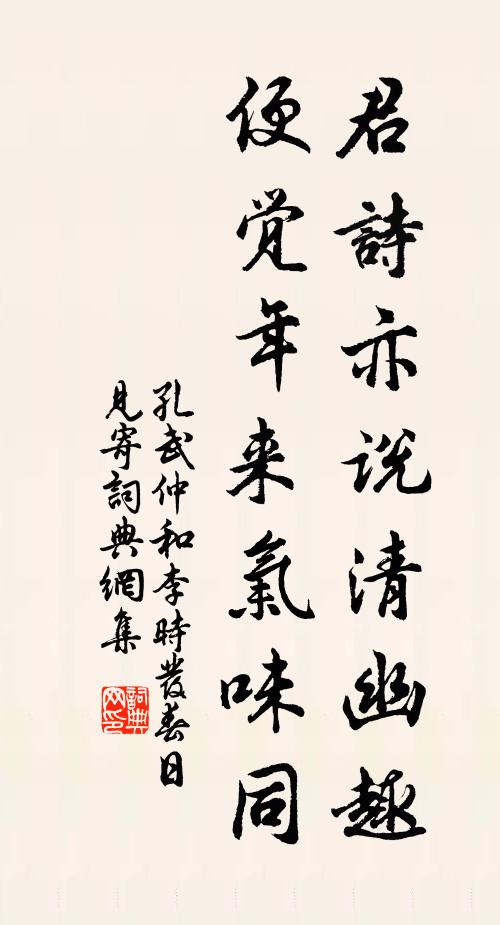 君詩亦説清幽趣
便覺年来氣味同
孔武仲和李時發春日
見寄詞典網集
詞典网印